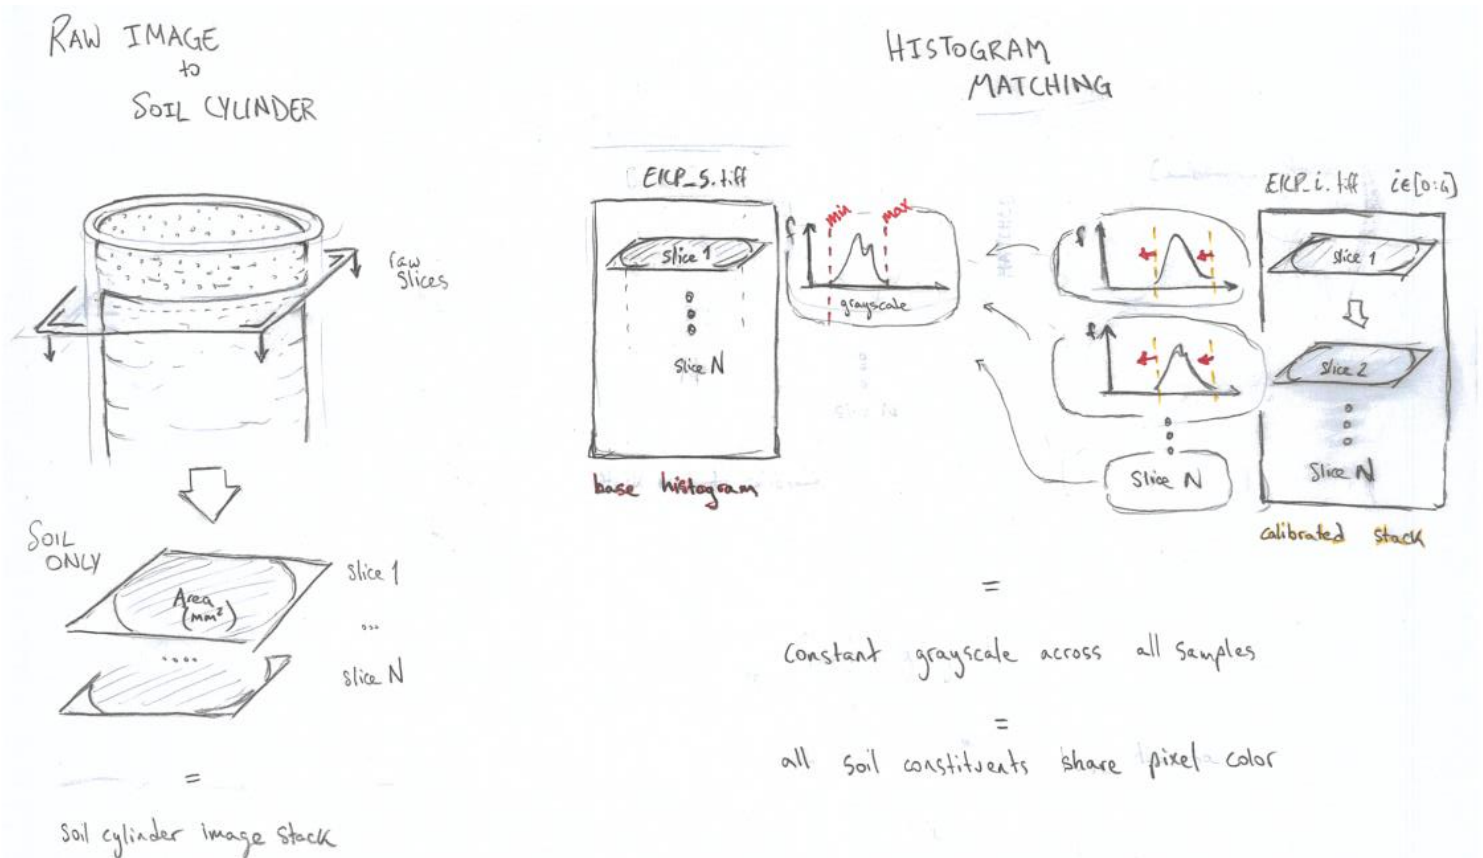 RAW IMAGE
to
SOIL CYLINDER
raw
slices
SOIL
ONLY
Area
(mm²)
slice 1
...
....
slice N
=
soil cylinder image stack
HISTOGRAM
MATCHING
EKP_5.tiff
slice 1
slice N
base histogram
min
max
f
grayscale
f
f
Slice N
EKP_i.tiff i∈[0:4]
slice 1
slice 2
Slice N
calibrated stack
=
constant grayscale across all samples
=
all soil constituents share pixel color